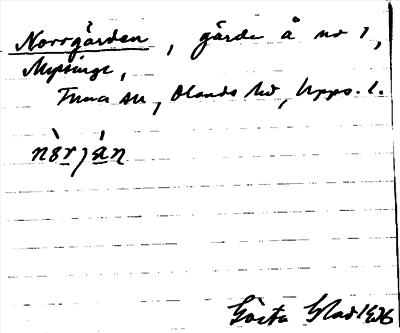 Norrgården, gärde å nr 1,
Mysinge,
Tuna sn, Olands hd, Upps. l.
Gösta Blad 1936